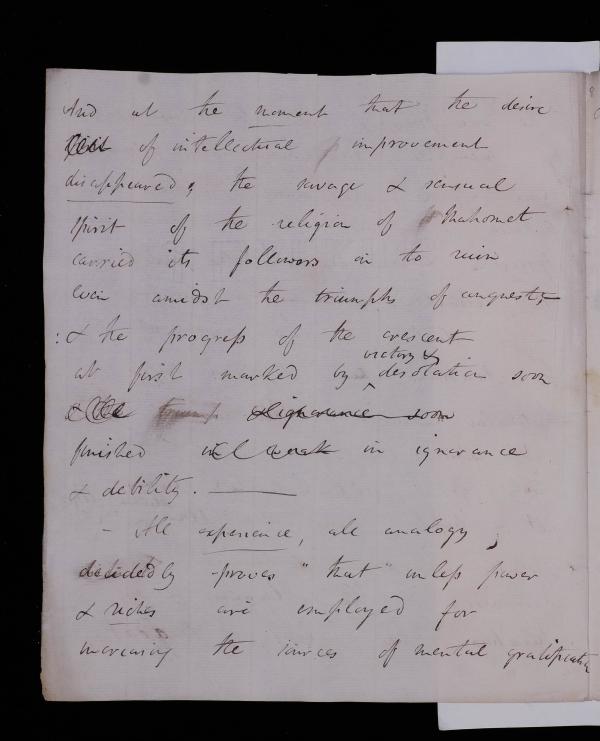 And at the moment that the desire
of intellectual improvement
disappeared, the savage & sensual
spirit of the religion of Mahomet
carried its followers on to ruin
even amidst the triumphs of conquest,
: & the progress of the crescent
victory &
at first marked by ^ desolation soon
& the triumph & ignorance soon
finished in ignorance
& debility. ———
– All experience, all analogy,
decidedly proves "that" unless power
& riches are employed for
increasing the sources of mental gratification